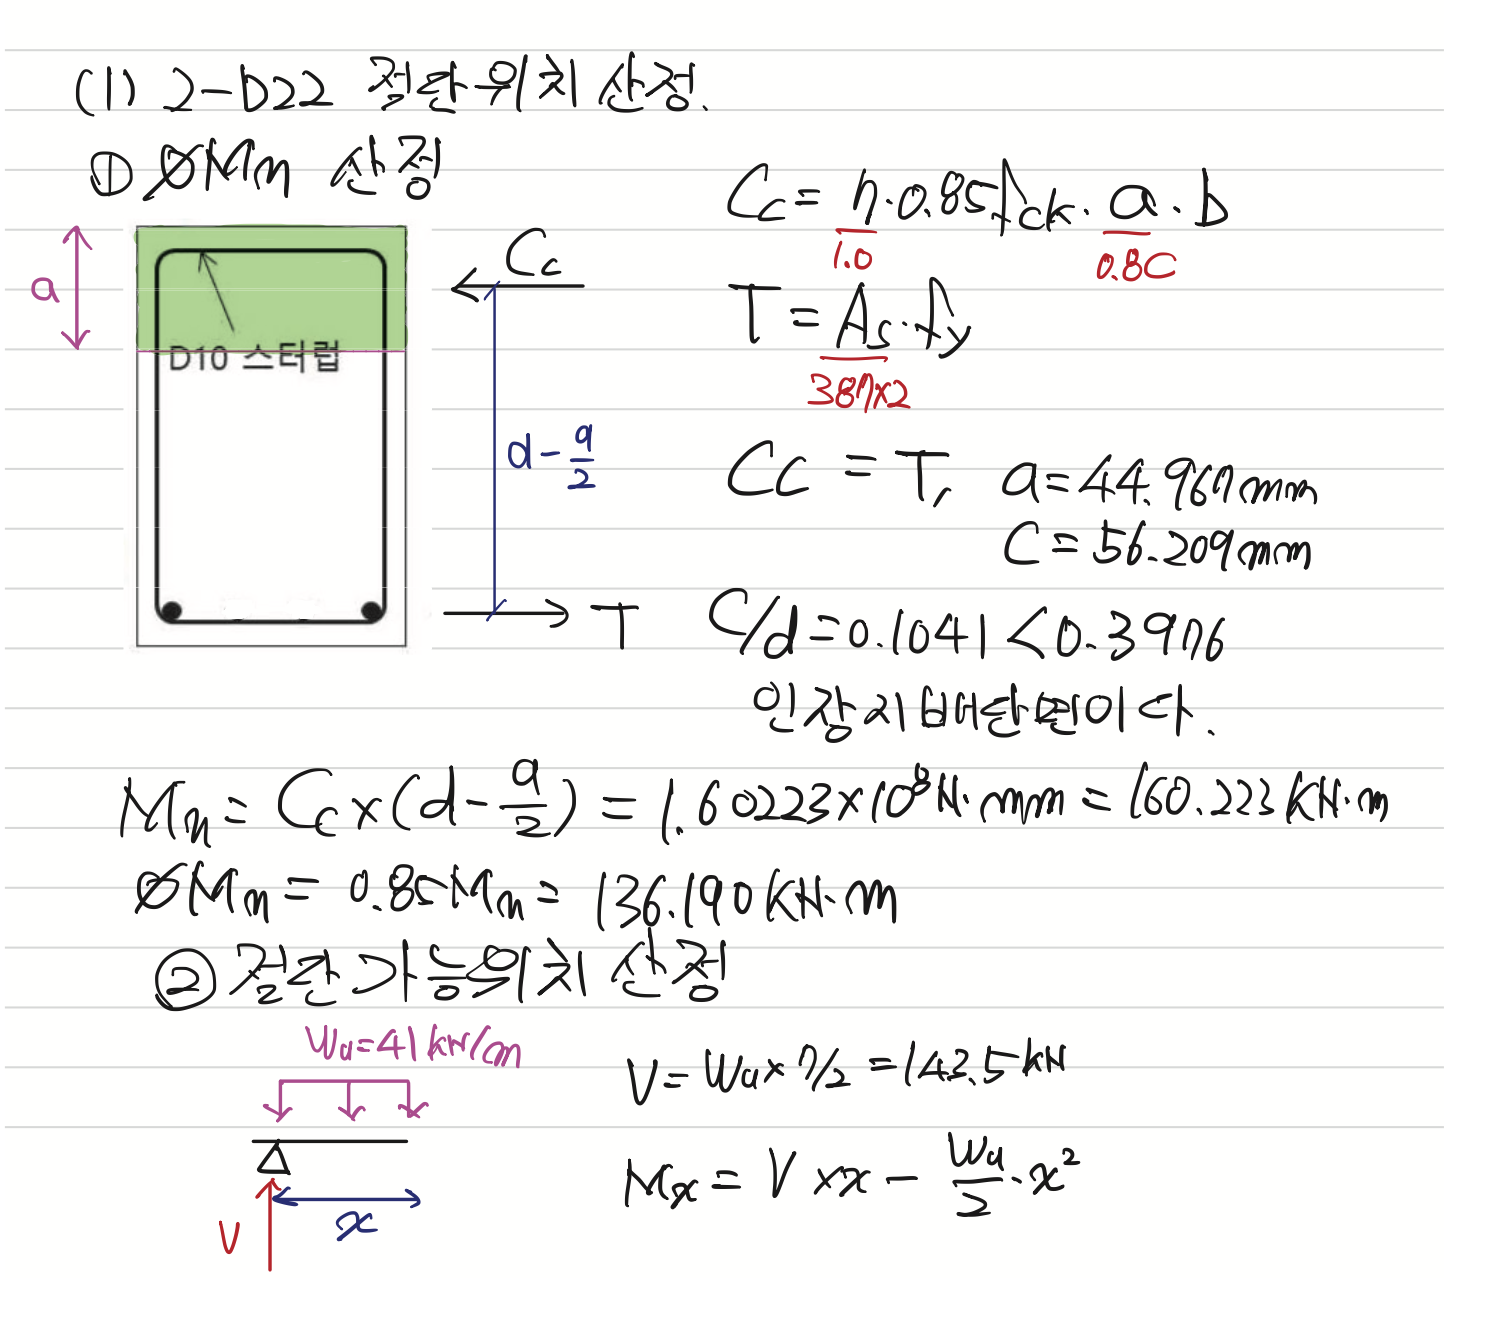 (1) 2-D22 절단위치 산정.
① ØMn 산정
Cc = η·0.85fck·a·b
1.0
0.8C
a
D10 스터럽
Cc
d - a/2
T
T = As·fy
387×2
Cc = T, a=44.967mm
C = 56.209mm
C/d = 0.1041 < 0.3976
인장지배단면이다.
Mn = Cc × (d - a/2) = 1.60223×10⁸ N·mm = 160.223 KN·m
ØMn = 0.85Mn = 136.190 KN·m
② 절단가능위치 산정
Wu=41kN/m
V
x
V = Wu × 7/2 = 143.5 kN
Mx = V × x - Wu/2 · x²